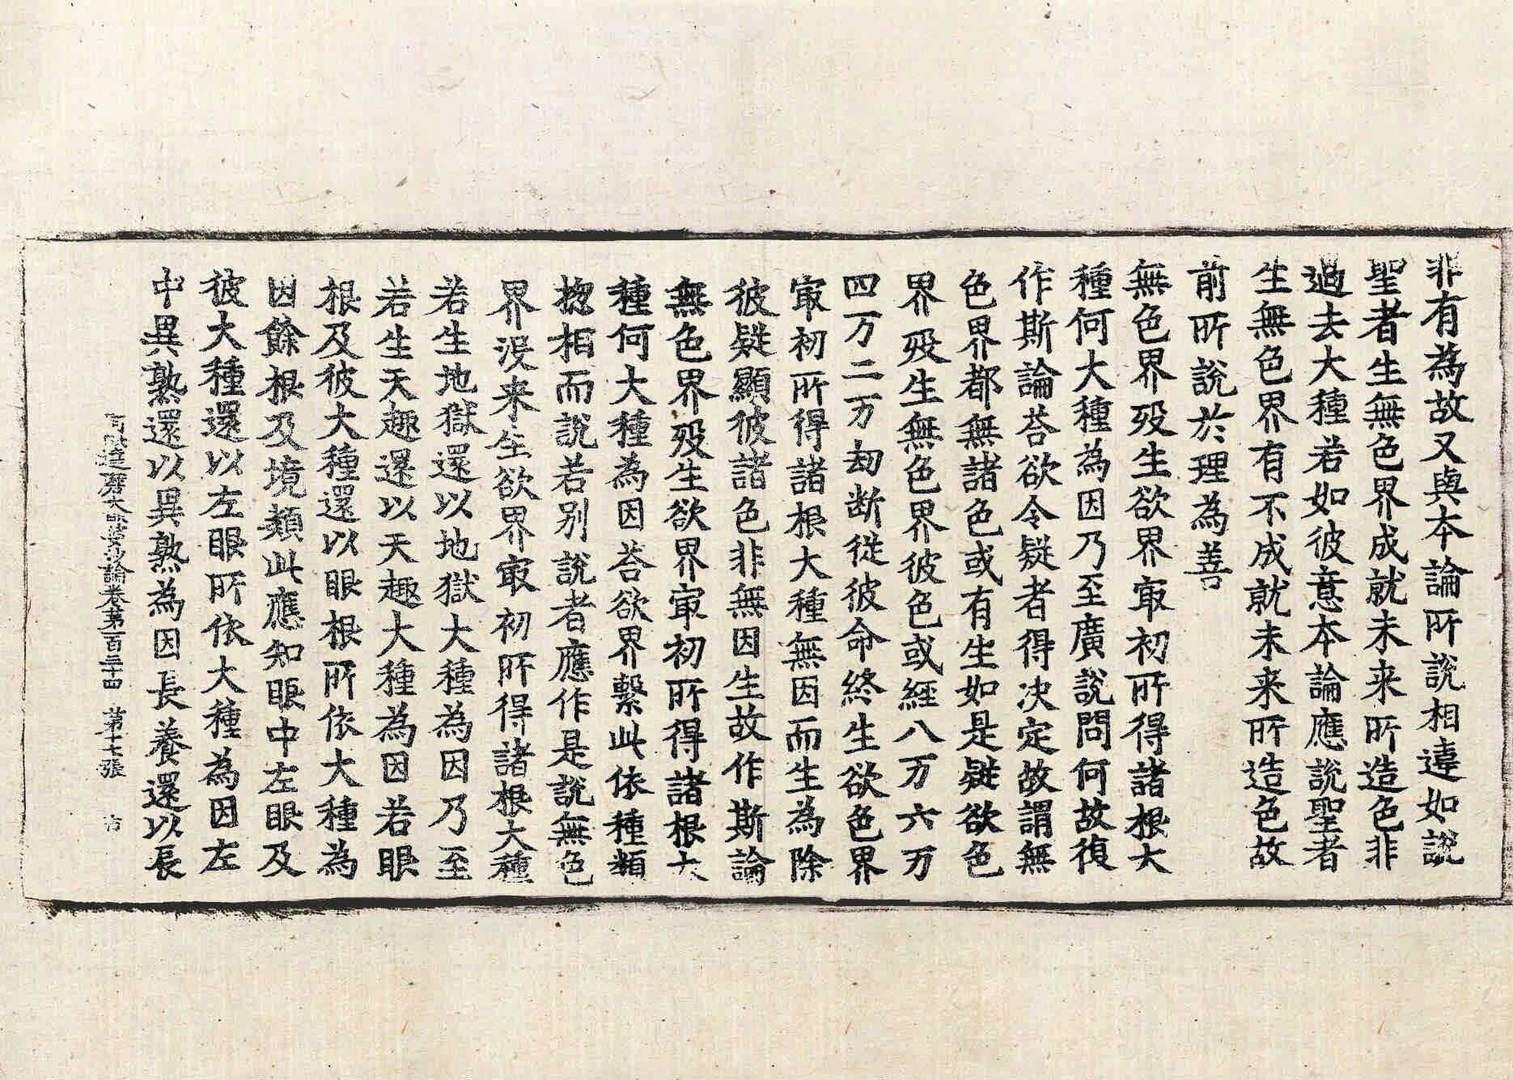 非有為故又與本論所說相違如說
聖者生無色界成就未来所造色非
過去大種若如彼意本論應說聖者
生無色界有不成就未来所造色故
前所說於理為善
無色界歿生欲界㝡初所得諸根大
種何大種為因乃至廣說問何故復
作斯論荅欲令疑者得决定故謂無
色界都無諸色或有生如是疑欲色
界歿生無色界彼色或經八万六万
四万二万劫断從彼命終生欲色界
㝡初所得諸根大種無因而生為除
彼疑顯彼諸色非無因生故作斯論
無色界歿生欲界㝡初所得諸根大
種何大種為因荅欲界繫此依種類
揔相而說若別說者應作是說無色
界没来生欲界㝡初所得諸根大種
若生地獄還以地獄大種為因乃至
若生天趣還以天趣大種為因若眼
根及彼大種還以眼根所依大種為
因餘根及境類此應知眼中左眼及
彼大種還以左眼所依大種為因左
中異熟還以異熟為因長養還以長
阿毗達磨大毗婆沙論卷第一百三十四 第十七張